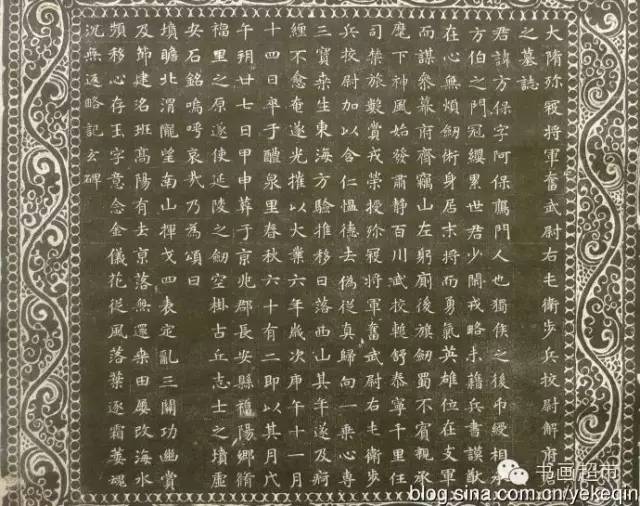 大隋殄寇將軍奮武尉右屯衛步兵校尉解府君
之墓誌
君諱方保字阿保鴈門人也獨侯之後巾纓相承
方伯之門冠纓累世君少閑戎略未藉兵書謨猷
在心無煩劒術身居末將而勇氣英雄位在支軍
而謀參幕府齊竊山左躬廁後旗劒蜀不賓親承
麾下神風始發肅静百川武校載舒泰寧千里任
司禁旅數賞戎榮授殄寇將軍奮武尉右屯衛步
兵校尉加以含仁愠德去僞從真歸向一乘心專
三寶桑生東海方驗推移日落西山其年遂及痾
纏不愈奄遂光摧以大業六年歲次庚午十一月
十四日卒于醴泉里春秋六十有二即以其月戊
午朔廿七日甲申葬于京兆郡長安縣福陽鄉脩
福里之原遂使延陵之劒空掛古丘志士之墳虛
安石銘嗚呼哀哉乃為頌曰
墳瞻北渭隴望南山揮戈四表定亂三關功幽賞
及節建名班髙陽有去京落無還桒田屢改海水
頻移心存王字意念金儀花從風落葉逐霜萎魂
沉無返略記玄碑
书画超市
blog.sina.com.cn/yekeqin